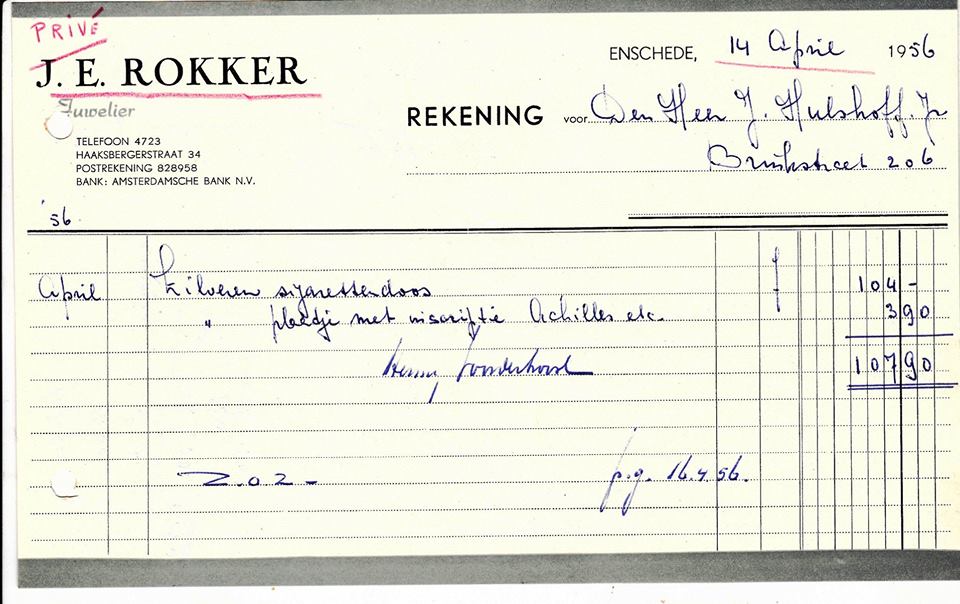 PRIVÉ
J. E. ROKKER
Juwelier
TELEFOON 4723
HAAKSBERGERSTRAAT 34
POSTREKENING 828958
BANK: AMSTERDAMSCHE BANK N.V.
ENSCHEDE, 14 April 1956
REKENING voor Den Heer J. Hulshoff. Jr
Brinkstraat 206
'56
April Zilveren sigarettendoos f 104 -
" plaatje met inscriptie Achilles etc. 3 90
107 90
Z.O.Z -
p.g. 16.4 56.